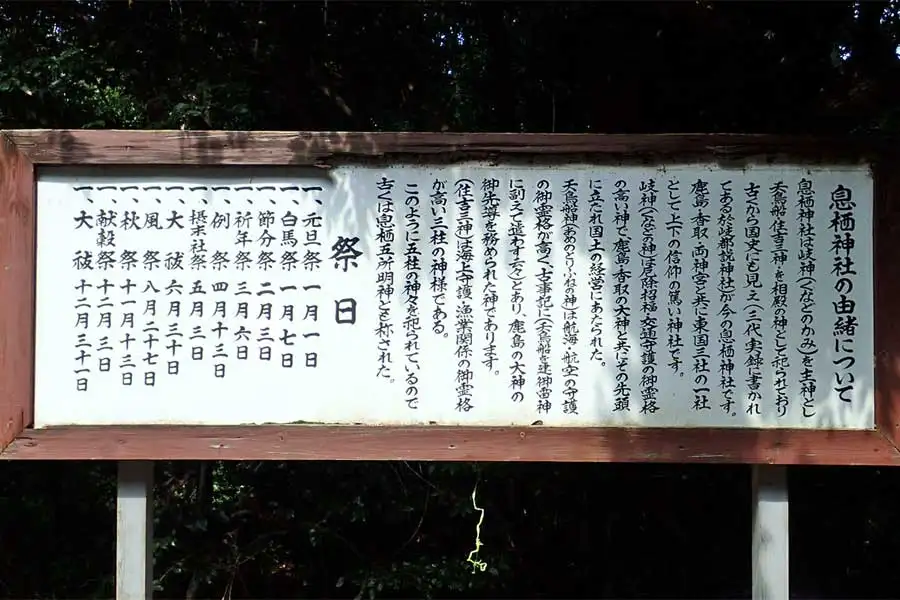 息栖神社の由緒について
息栖神社は岐神(くなどのかみ)を主神とし
天鳥船・住吉三神・を相殿の神として祀られており
古くから国史にも見え(三代実録に書かれ
てある於岐都説神社が今の息栖神社です。
鹿島・香取・両神宮と共に東国三社の一社
として上下の信仰の篤い神社です。
岐神(くなどの神)は厄除招福・交通守護の御霊格
の高い神で鹿島・香取の大神と共にその先頭
に立たれ国土の経営にあたられた。
天鳥船神(あめのとりふねの神)は航海・航空の守護
の御霊格が高く(古事記に(天鳥船を建御雷神
に副えて遣わす云々)とあり、鹿島の大神の
御先導を務められた神であります。
(住吉三神)は海上守護・漁業関係の御霊格
が高い三柱の神様である。
このように五柱の神々を祀られているので
古くは息栖五所明神とも称された。
祭日
一、元旦祭 一月一日
一、白馬祭 一月七日
一、節分祭 二月三日
一、祈年祭 三月六日
一、例祭 四月十三日
一、摂末社祭 五月三日
一、大祓 六月三十日
一、風祭 八月二十七日
一、秋祭 十一月十三日
一、献穀祭 十二月三日
一、大祓 十二月三十一日